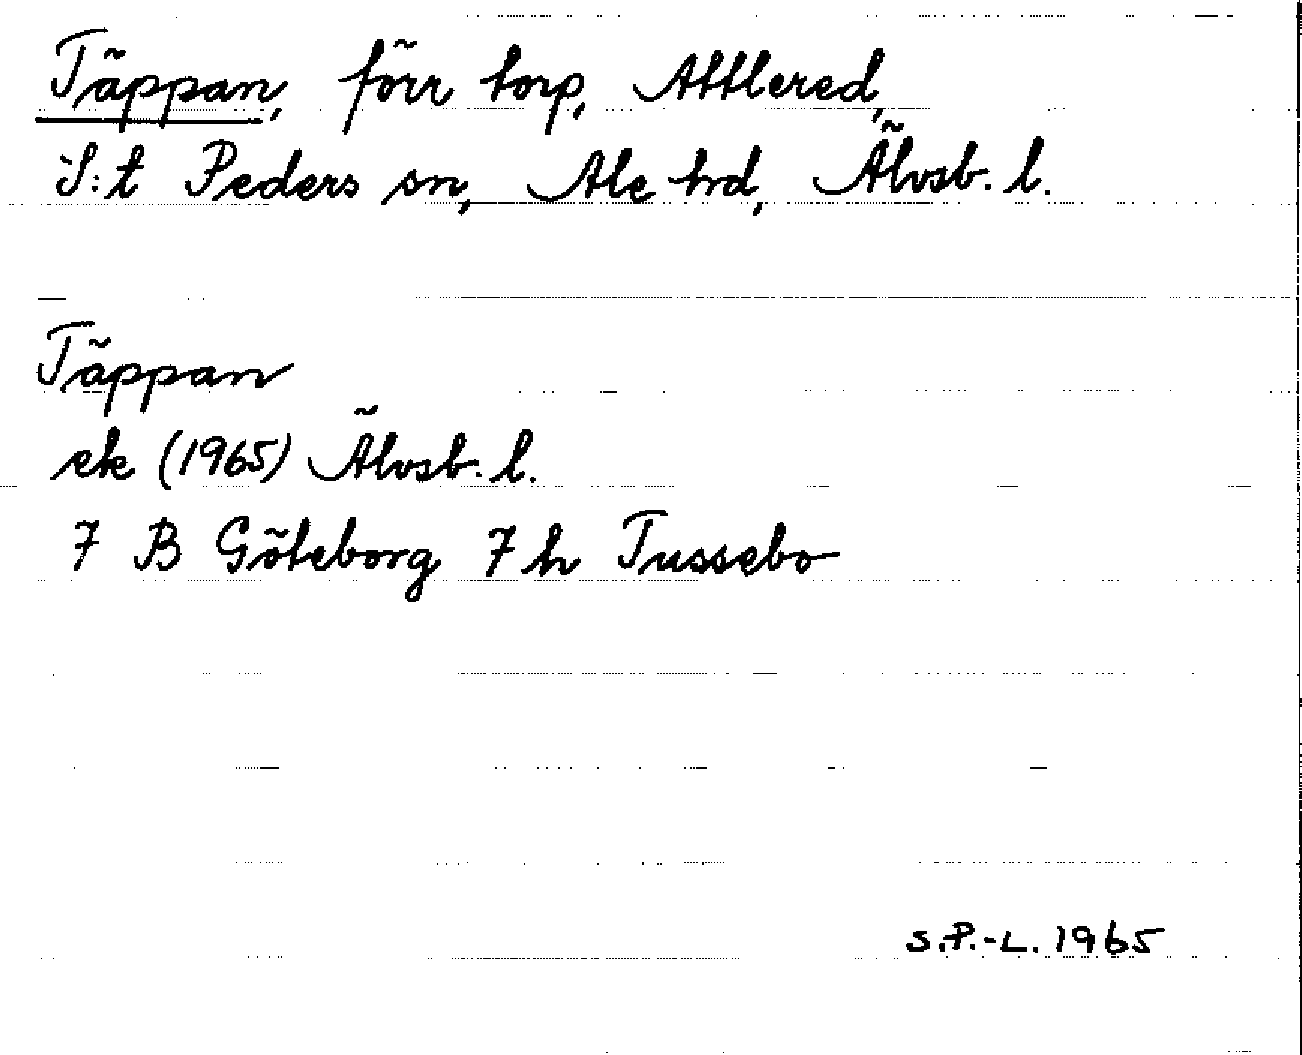 Täppan, förr torp, Attlered,
S:t Peders sn, Ale hrd, Älvsb. l.
Täppan
ek (1965) Älvsb. l.
7 B Göteborg 7 h Tussebo
S.P.-L. 1965